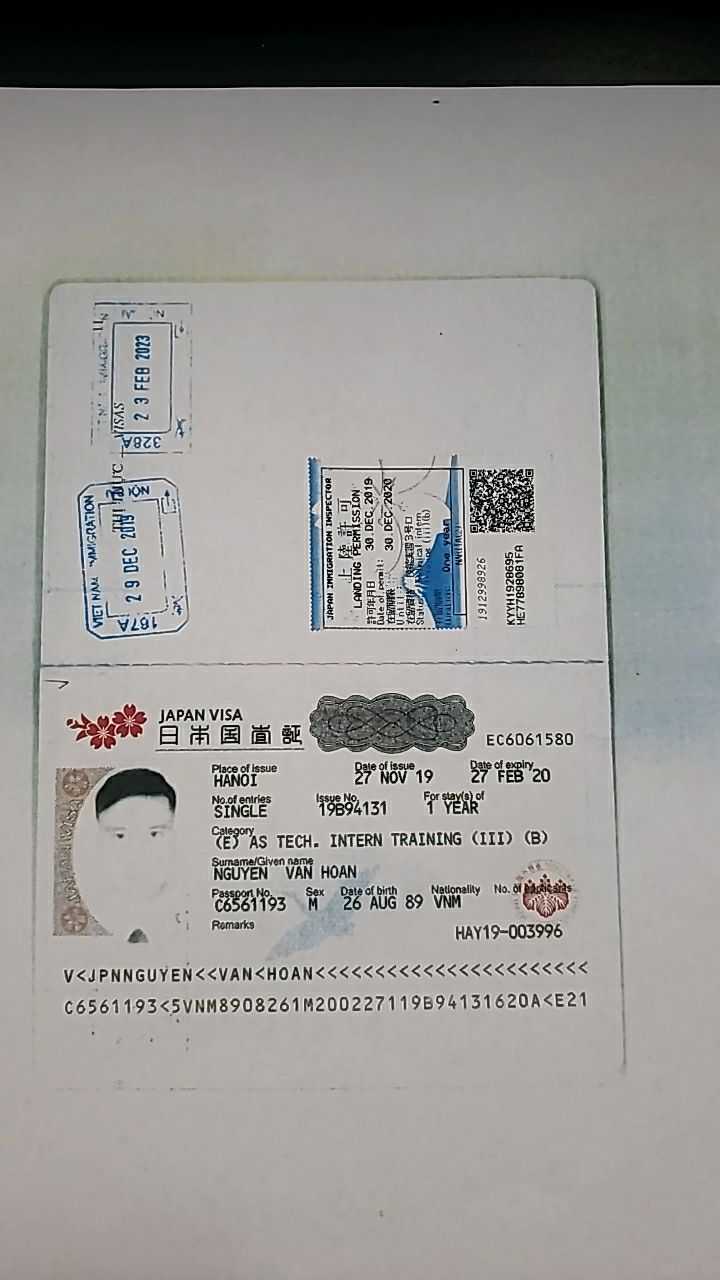 23 FEB 2023
328A
VISAS
VIET NAM IMMIGRATION
29 DEC 2019
167A
JAPAN IMMIGRATION INSPECTOR
上陸許可
LANDING PERMISSION
許可年月日 30.DEC.2019
Date of permit:
30.DEC.2020
Until:
One year
1912998926
KYYH1928695
HE77898081FA
JAPAN VISA
日本国査証
EC6061580
Place of issue Date of issue Date of expiry
HANOI 27 NOV 19 27 FEB 20
No.of entries Issue No. For stay(s) of
SINGLE 19B94131 1 YEAR
Category
(E) AS TECH. INTERN TRAINING (III) (B)
Surname/Given name
NGUYEN VAN HOAN
Passport No. Sex Date of birth Nationality No. of applicants
C6561193 M 26 AUG 89 VNM
Remarks
HAY19-003996
V<JPNNGUYEN<<VAN<HOAN<<<<<<<<<<<<<<<<<<<<<<<
C6561193<5VNM8908261M200227119B94131620A<E21